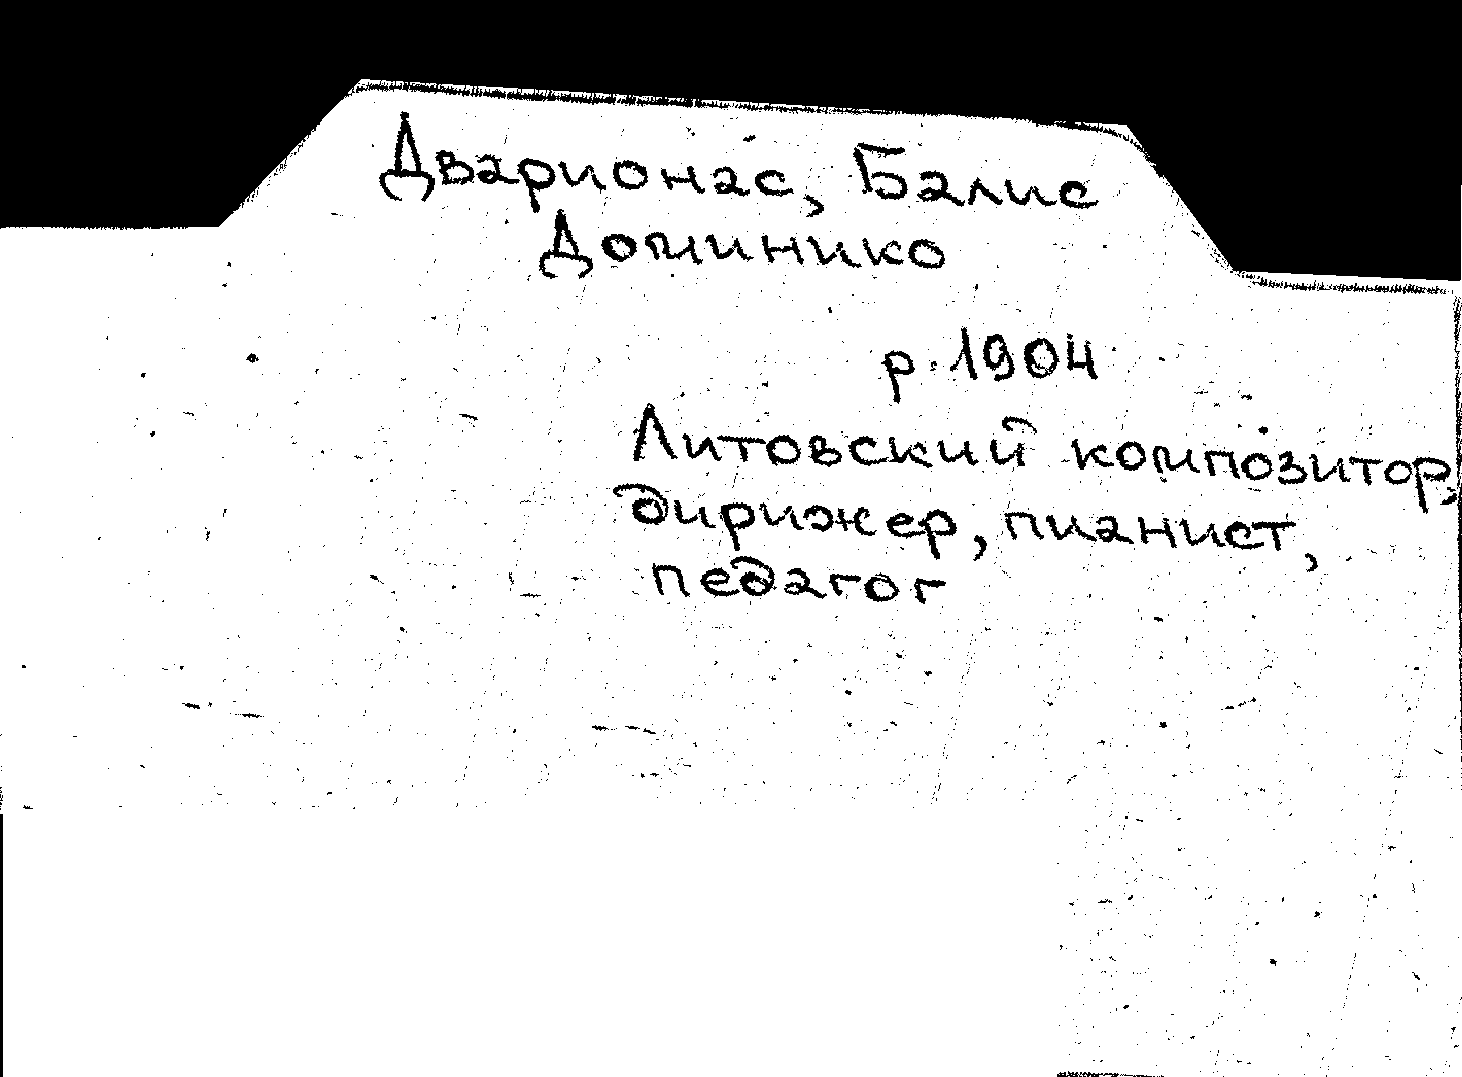 Дварионас, Балис
Доминико
р. 1904
Литовский композитор,
дирижер, пианист,
педагог